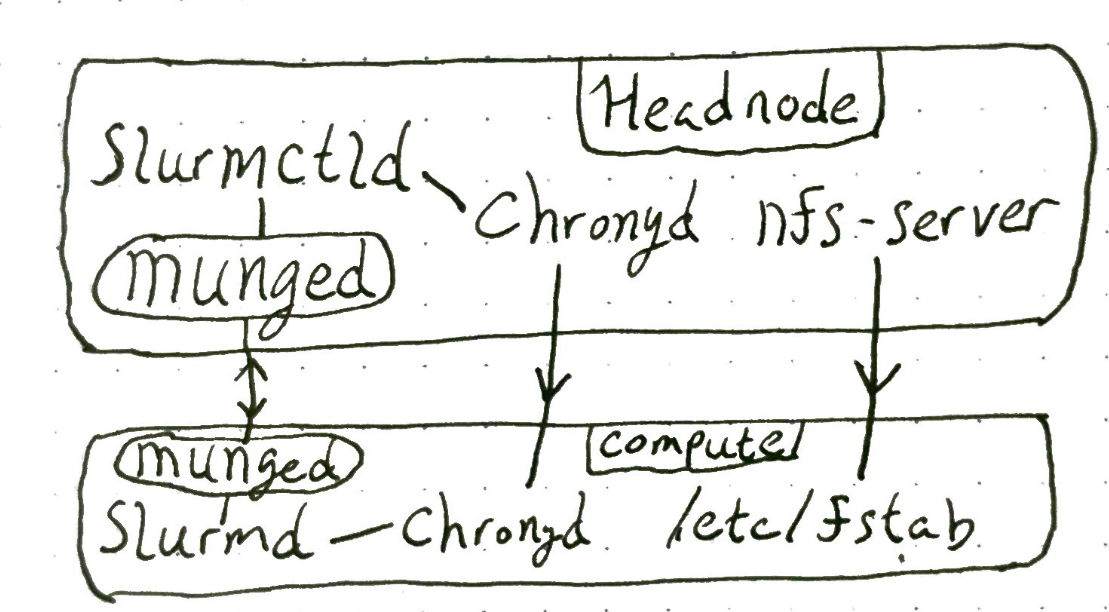 Headnode
Slurmctld
Chronyd nfs-server
munged
munged
compute
Slurmd Chronyd /etc/fstab